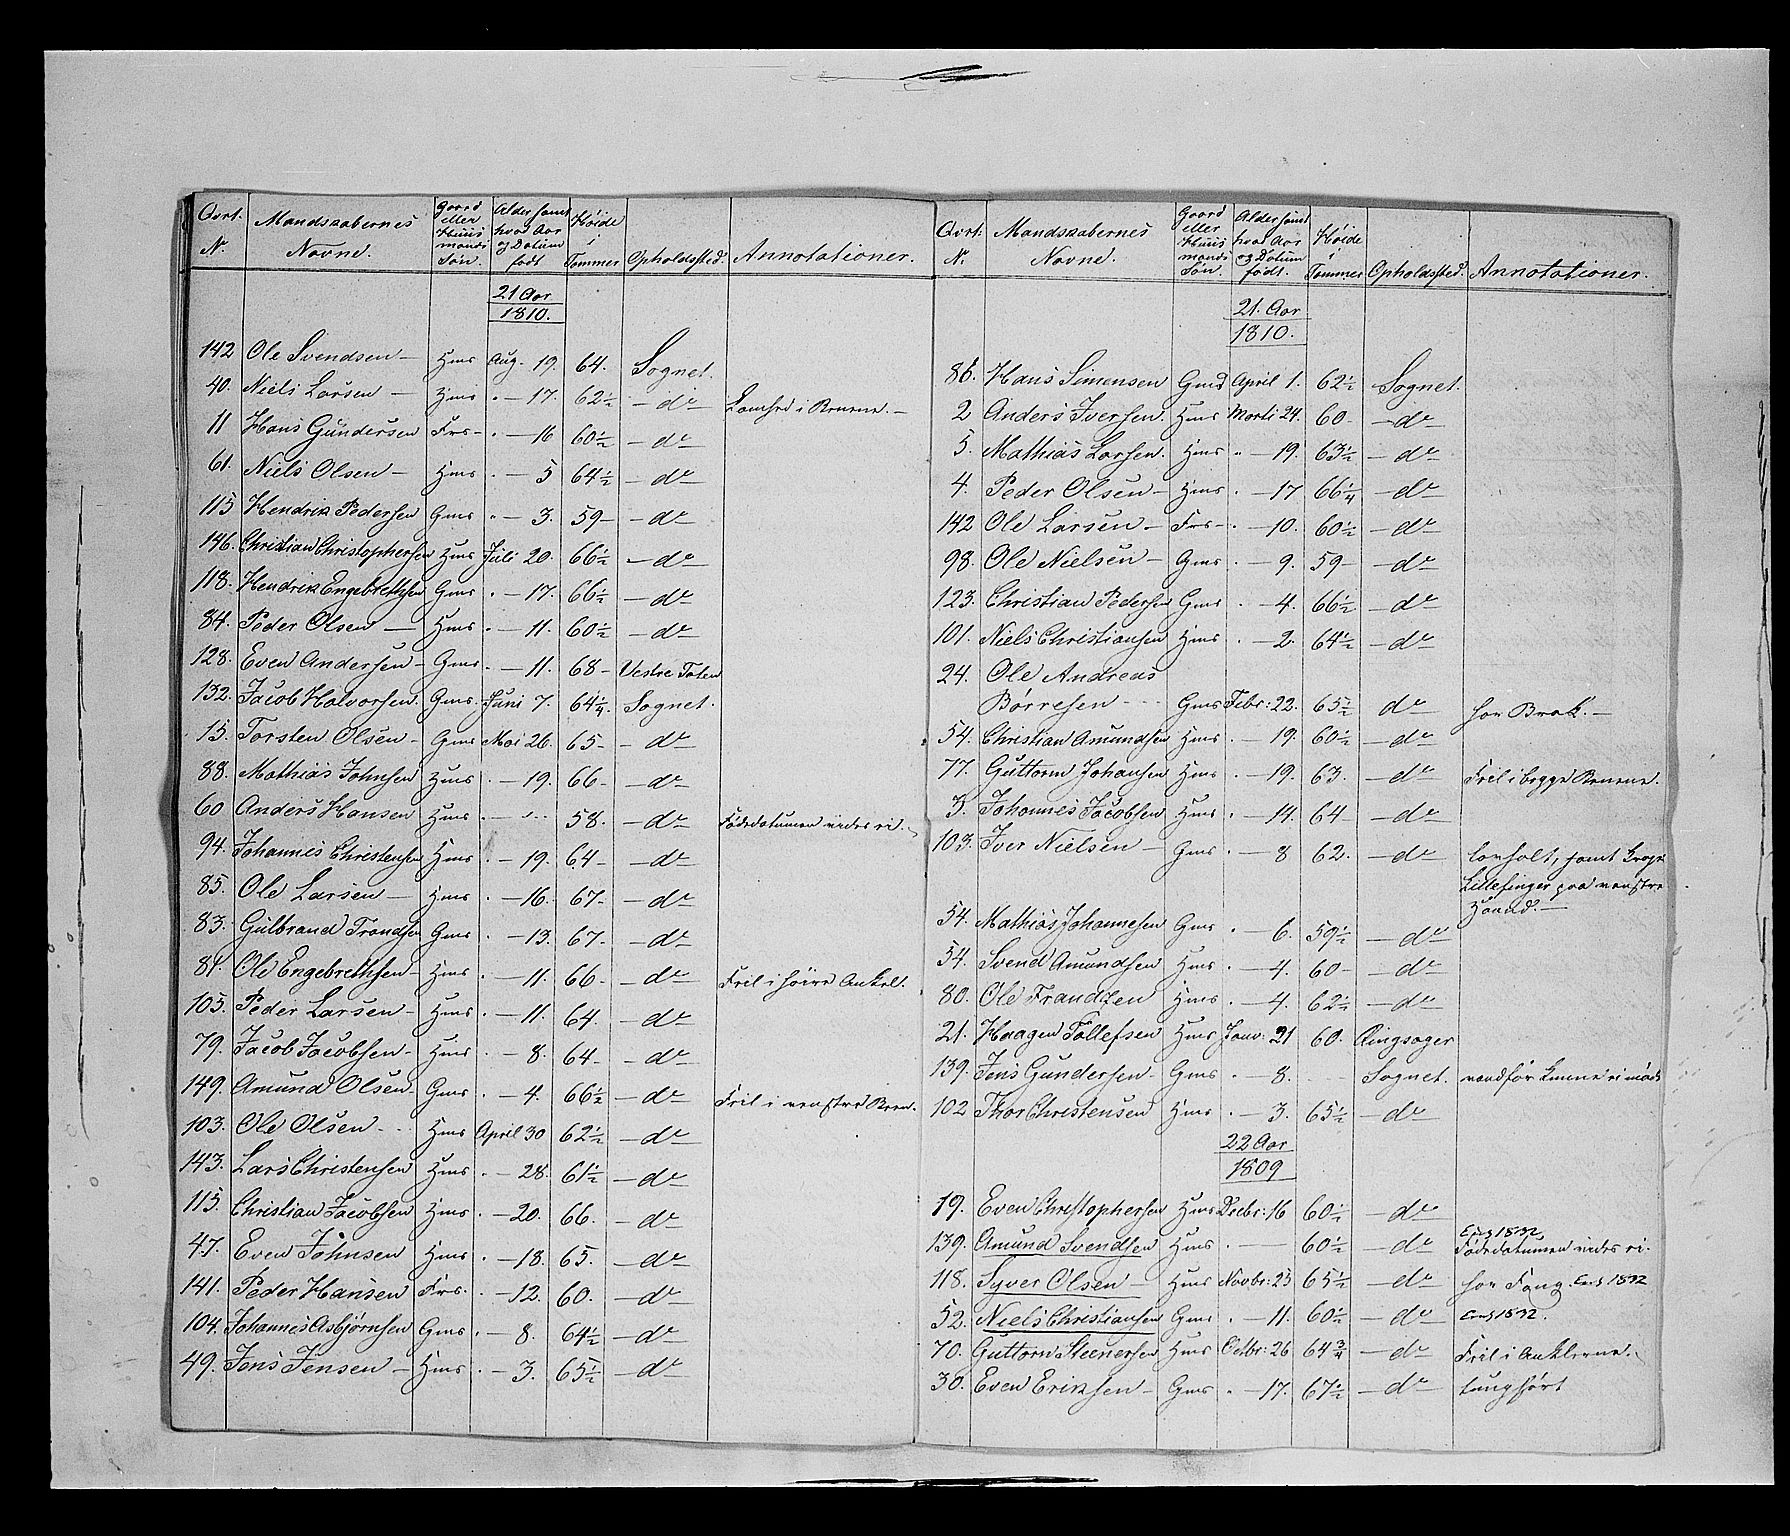 Qvrt. N. Mandskabernes Navne. Gaard eller Huus mands Søn. Alder samt hvad Aar og Datum født Høide i Tommer Opholdssted. Annotationer.
21 Aar
1810.
142 Ole Svendsen — Hms Aug. 19. 64. Sognet.
40. Niels Larsen — Hms " — 17. 62½ — do — Lamhed i Benene. —
11 Hans Gundersen Frs — " — 16 60½ — do —
61. Niels Olsen — Hms " — 5 64½ — do —
115 Hendrik Pedersen Gms " — 3. 59 — — do —
146. Christian Christophersen Hms Juli 20. 66½ — do —
118. Hendrik Engebrethsen Gms " — 17. 66½ — do —
84. Peder Olsen — Hms " — 11. 60½ — do —
128. Even Andersen — Gms " — 11. 68 — Vestre Toten
132. Jacob Halvorsen. Gms. Juni 7. 64¼. Sognet.
15. Torsten Olsen — Gms Mai 26. 65 — — do —
88. Mathias Johnsen Hms " — 19. 66 — — do —
60 Anders Hansen Hms " — " 58. — do — Fødedatumen vides ei. —
94. Johannes Christensen Hms " — 19. 64 — — do —
85. Ole Larsen — Hms " — 16. 67 — — do —
83. Gulbrand Trondsen Gms " — 13. 67 — — do —
81. Ole Engebrethsen — Hms " — 11. 66 — — do — Feil i høire Ankel.
105. Peder Larsen — Hms " — 11. 64. — do —
79. Jacob Jacobsen — Hms " — 8. 64 — — do —
149. Amund Olsen — Gms " — 4. 66½ — do — Feil i venstre Been.
103. Ole Olsen — Hms April 30 62½ — do —
143. Lars Christensen Hms " — 28. 61½ — do —
115. Christian Jacobsen Hms " — 20. 66. — do —
47. Even Johnsen Hms " — 18. 65. — do —
141. Peder Hansen Frs. " — 12. 60. — do —
104. Johannes Asbjørnsen Gms " — 8. 64½ — do —
49. Jens Jensen — Hms " — 3. 65½ — do —
Qvrt. N. Mandskabernes Navne. Gaard eller Huus mands Søn Alder samt hvad Aar og Datum født. Høide i Tommer Opholdssted. Annotationer.
21. Aar
1810.
86. Hans Simensen Gms April 1. 62½ Sognet.
2 Anders Iversen Hms Marti 24. 60 — — do —
5. Mathias Larsen. Hms " — 19. 63½ — do —
4. Peder Olsen — Hms " — 17 66¼ — do —
142 Ole Larsen — Frs — " — 10. 60½ — do —
98. Ole Nielsen — Gms " — 9. 59 — — do —
123. Christian Pedersen Gms " — 4. 66½ — do —
101. Niels Christiansen Hms " — 2. 64½ — do —
24. Ole Andreas
Børresen — Gms Febr: 22. 65½ do — har Brok. —
54. Christian Amundsen Hms " — 19. 60½ — do —
77. Guttorm Johansen Hms " — 19. 63. — do — Feil i begge Benene.
3. Johannes Jacobsen Hms " — 14. 64 — — do —
103. Iver Nielsen — Gms " — 8 62. — do — lavhalt, samt
Lillefinger paa venstre
Haand. —
54. Mathias Johannesen Gms " — 6. 59½ — do —
54. Svend Amundsen Hms " — 4. 60 — — do —
80. Ole Frandzen Hms " — 4. 62½ — do —
21. Haagen Tollefsen Hms Janv: 21 60. Ringsager
139. Jens Gundersen — Gms " — 8. Sognet.
102 Thor Christensen Hms " — 3. 65½ — do —
22 Aar
1809
19. Even Christophersen Hms Decbr: 16 60½ — do —
Eng 1832,
139. Amund Svendsen Hms " — 60½ — do — Fødedatumen vides ei.
118. Syver Olsen — Hms Novbr: 25 65½ — do — har Fang. Eng 1832
52. Niels Christiansen Gms " — 11. 60½ — do — Eng 1832.
70. Guttorm Steenersen Hms Octbr: 26 64¾ — do — Feil i Anklerne.
30. Even Eriksen — Gms " — 17. 67½ — do — tunghørt